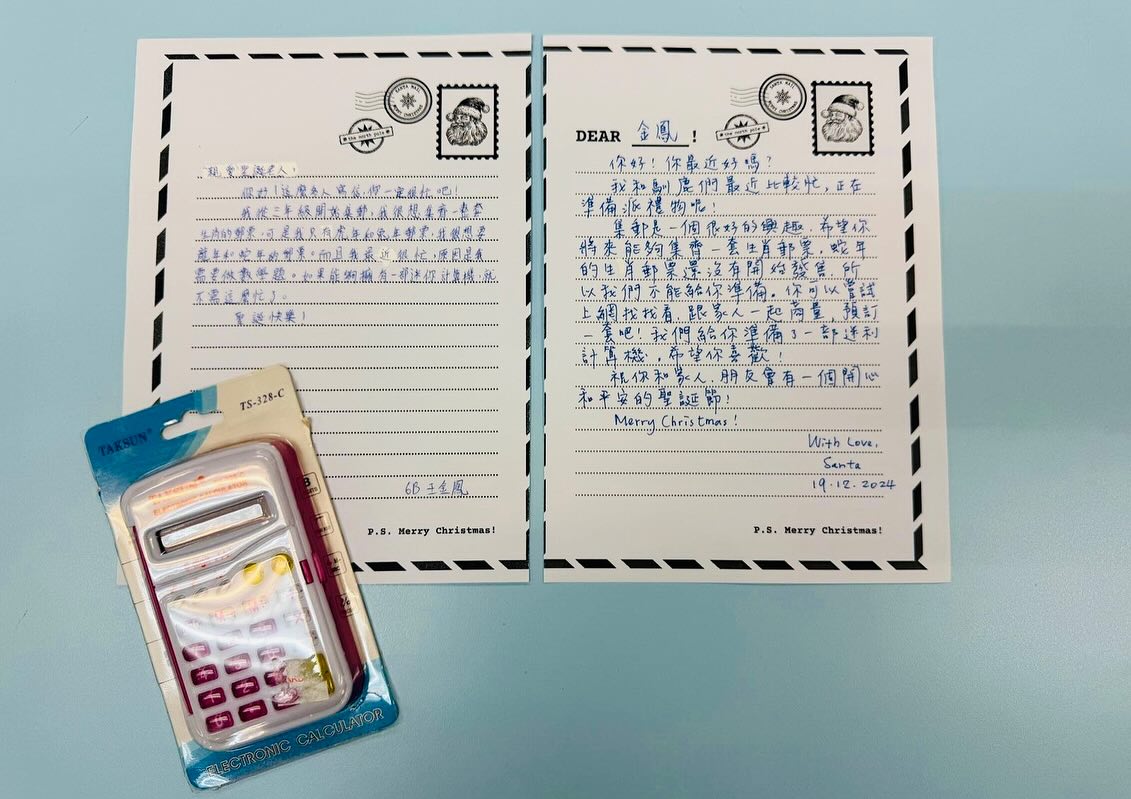 SANTA MAIL
MERRY CHRISTMAS
the north pole
親愛聖誕老人:
你好!這麼多人寫信,你一定很忙吧!
我從三年級開始集郵,我很想集齊一套套
生肖的郵票,可是我只有虎年和兔年郵票,我很想要
龍年和蛇年的郵票。而且我最近很忙,原因是我
需要做數學題。如果能夠擁有一部迷你計算機,就
不需這麼忙了。
聖誕快樂!
6B 王金鳳
P.S. Merry Christmas!
SANTA MAIL
MERRY CHRISTMAS
the north pole
DEAR 金鳳 !
你好!你最近好嗎?
我和馴鹿們最近比較忙,正在
準備派禮物呢!
集郵是一個很好的興趣,希望你
將來能夠集齊一套生肖郵票。蛇年
的生肖郵票還沒有開始發售,所
以我們不能給你準備。你可以嘗試
上網找找看,跟家人一起商量,預訂
一套吧!我們給你準備了一部迷你
計算機,希望你喜歡!
祝你和家人、朋友會有一個開心
和平安的聖誕節!
Merry Christmas!
With Love,
Santa
19.12.2024
P.S. Merry Christmas!
TAKSUN
TS-328-C
ELECTRONIC CALCULATOR
ELECTRONIC CALCULATOR